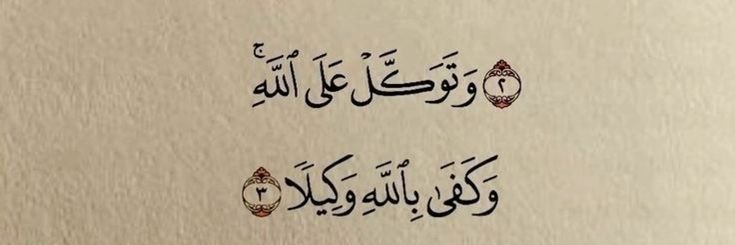 ۝٢ وَتَوَكَّلْ عَلَى ٱللَّهِۚ
وَكَفَىٰ بِٱللَّهِ وَكِيلًا ۝٣